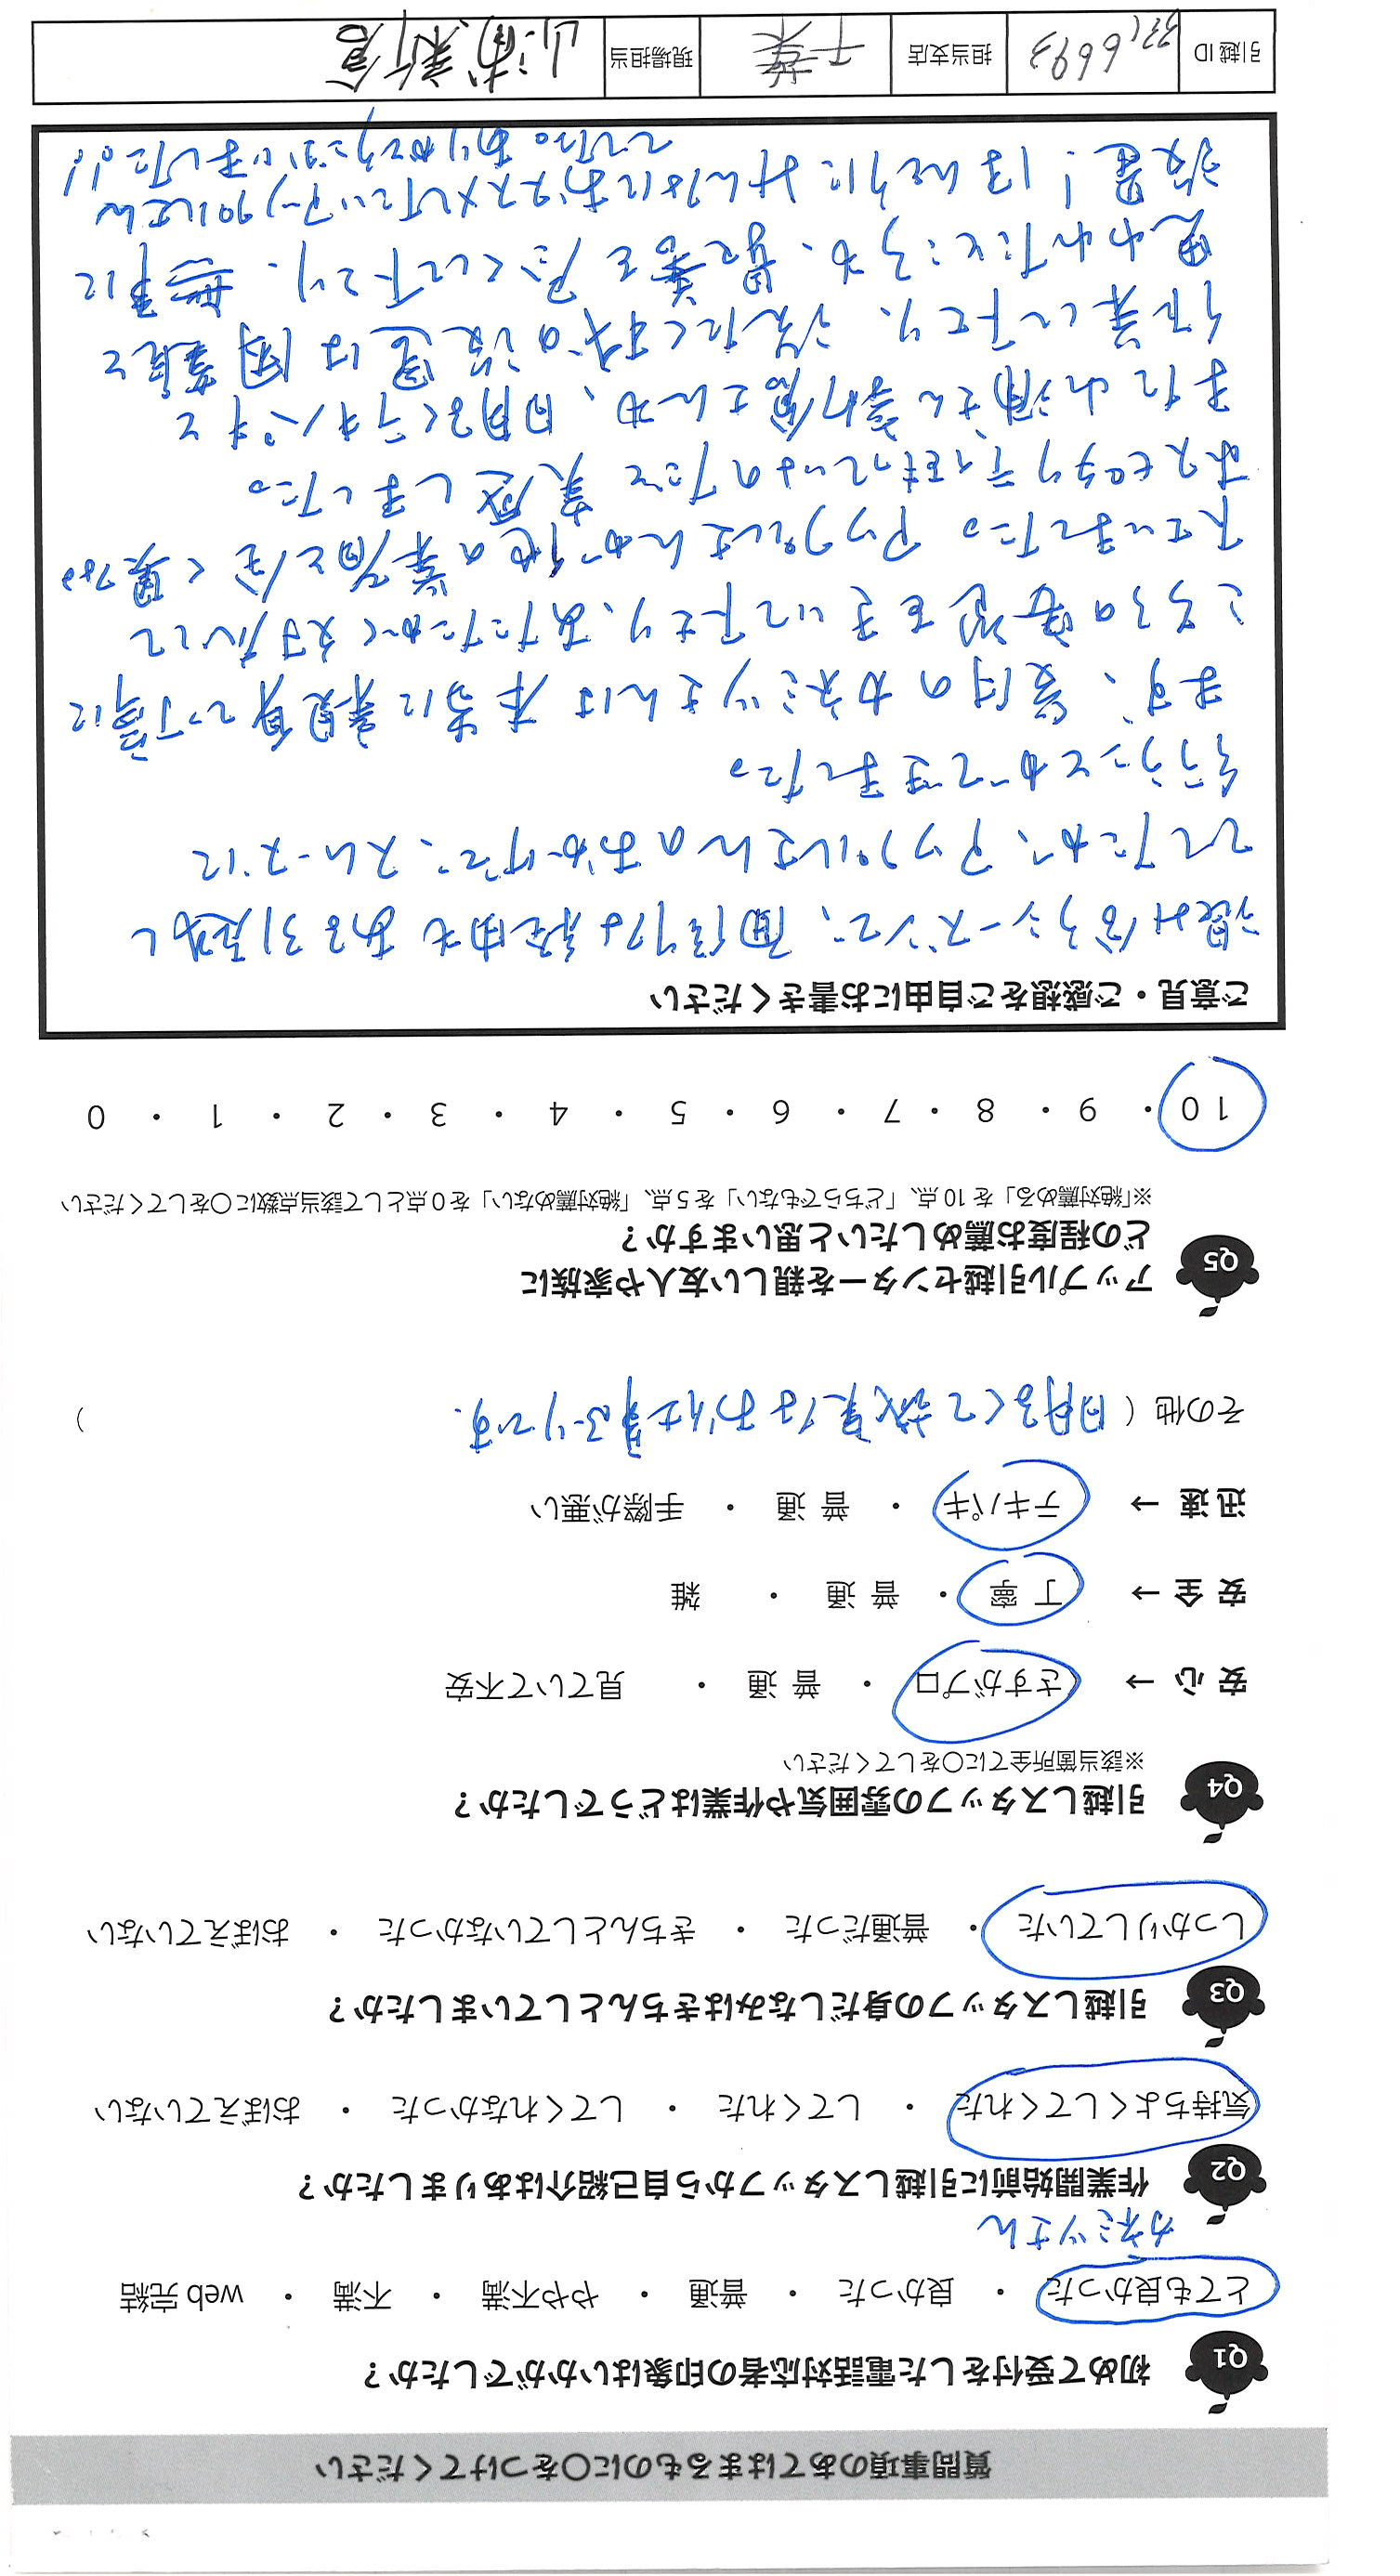 質問事項のあてはまるものに○をつけてください
Q1 初めて受付をした電話対応者の印象はいかがでしたか？
とても良かった ・ 良かった ・ 普通 ・ やや不満 ・ 不満 ・ web 完結
カネミツさん
Q2 作業開始前に引越しスタッフから自己紹介はありましたか？
気持ちよくしてくれた ・ してくれた ・ してくれなかった ・ おぼえていない
Q3 引越しスタッフの身だしなみはきちんとしていましたか？
しっかりしていた ・ 普通だった ・ きちんとしていなかった ・ おぼえていない
Q4 引越しスタッフの雰囲気や作業はどうでしたか？
※該当箇所全てに○をしてください
安 心 → さすがプロ ・ 普 通 ・ 見ていて不安
安 全 → 丁 寧 ・ 普 通 ・ 雑
迅 速 → テキパキ ・ 普 通 ・ 手際が悪い
その他（ 明るくて誠実なお仕事ぶりです. ）
Q5 アップル引越センターを親しい友人や家族に
どの程度お薦めしたいと思いますか？
※「絶対薦める」を 10 点、「どちらでもない」を 5 点、「絶対薦めない」を 0 点として該当点数に○をしてください
10 ・ 9 ・ 8 ・ 7 ・ 6 ・ 5 ・ 4 ・ 3 ・ 2 ・ 1 ・ 0
ご意見・ご感想をご自由にお書きください
混み合うシーズンで、面倒な経由もある引越し
でしたが、アップルさんのおかげで、スムーズに
行うことができました。
まず、受付のカネミツさんは本当に親身で丁寧に
こちらの要望をきいて下さり、あたたかく対応して
下さいました。アップルさんが他の業者と全く異なる
ホスピタリティを持っているのだと実感しました。
また山浦さん新倉さんも、明るくテキパキと
作業して下さり、洗たく機の設置は困難と
思われたところも、最善を尽くして下さり、無事に
設置！ほんとうにみんなにおススメしたいアップルさん
でした。ありがとうございました!!
引越 ID 3316693 担当支店 千葉 現場担当 山浦 新倉